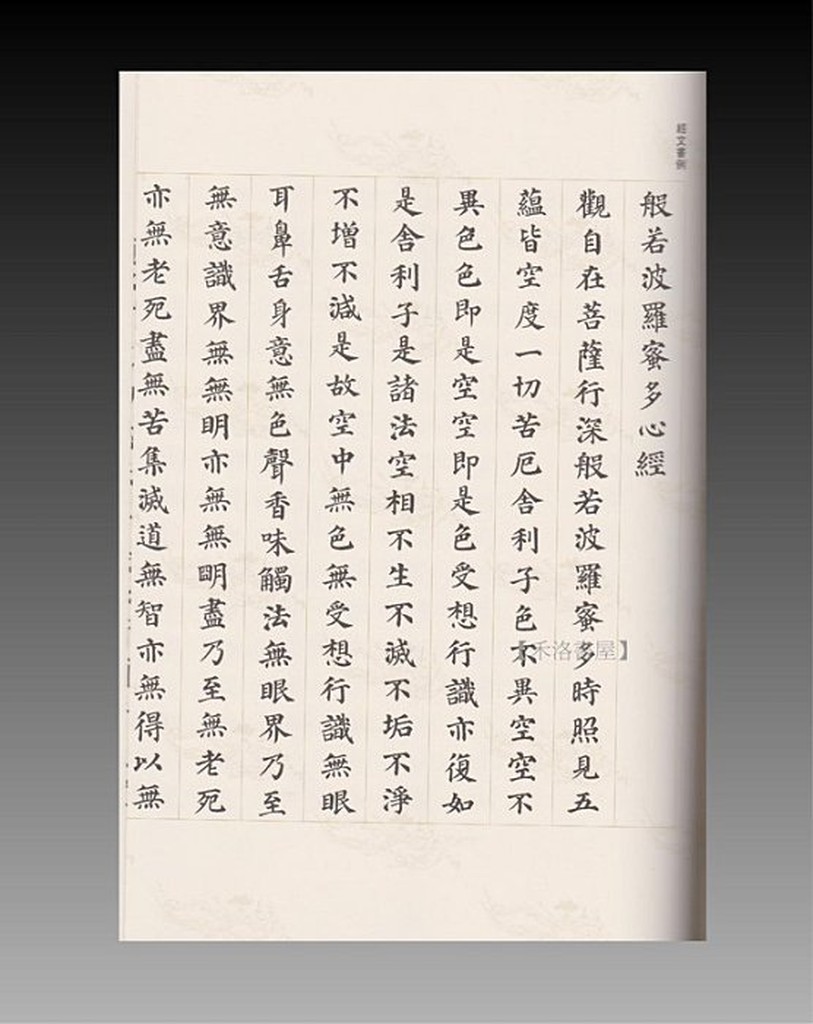 經文書例
般若波羅蜜多心經
觀自在菩薩行深般若波羅蜜多時照見五
蘊皆空度一切苦厄舍利子色不異空空不
異色色即是空空即是色受想行識亦復如
是舍利子是諸法空相不生不滅不垢不淨
不增不減是故空中無色無受想行識無眼
耳鼻舌身意無色聲香味觸法無眼界乃至
無意識界無無明亦無無明盡乃至無老死
亦無老死盡無苦集滅道無智亦無得以無
【禾洛書屋】